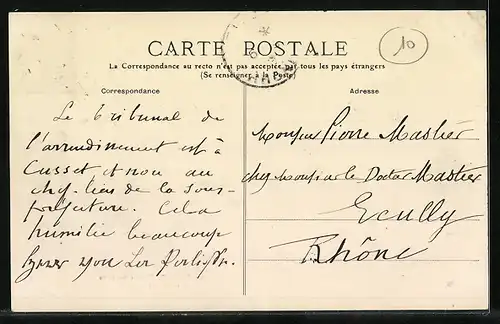 10
CARTE POSTALE
La Correspondance au recto n'est pas acceptée par tous les pays étrangers
(Se renseigner à la Poste)
Correspondance
Adresse
Le Tribunal de
l'arrondissement est à
Cusset, et non au
chef-lieu de la sous-
préfecture. Cela
humilie beaucoup
Monsieur Pierre Mastier
chez Monsieur le Docteur Mastier
Ecully
Rhône